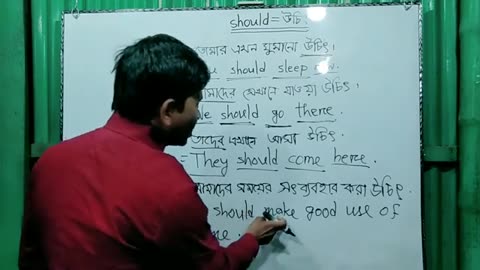 should = উচিৎ.
তোমার এখন ঘুমানো উচিৎ।
should sleep
আমাদের সেখানে যাওয়া উচিৎ
We should go there.
তাদের এখানে আসা উচিৎ.
= They should come here.
আমাদের সময়ের সৎব্যবহার করা উচিৎ
should make good use of